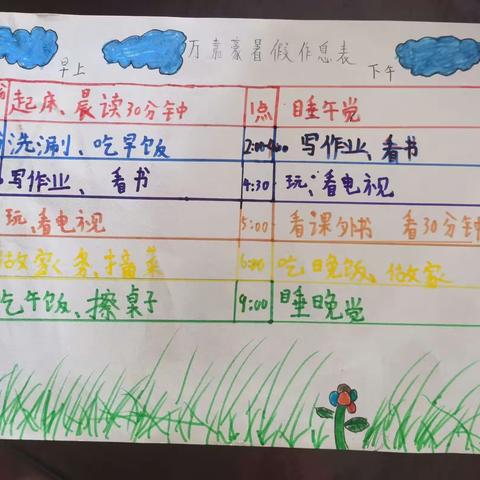 万嘉豪暑假作息表
早上 下午
起床、晨读30分钟 1点 睡午觉
洗涮、吃早饭 2:00-4:00 写作业、看书
写作业、看书 4:30 玩、看电视
玩、看电视 5:00 看课外书 看30分钟
做家务、摘菜 6:00 吃晚饭、做家
吃午饭、擦桌子 9:00 睡晚觉